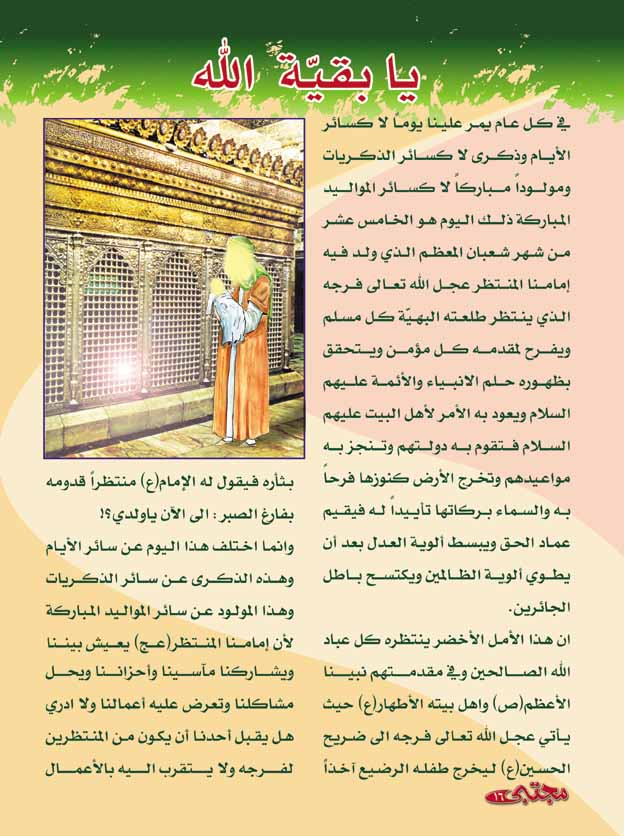 يا بقيّة الله
في كل عام يمر علينا يوماً لا كسائر
الأيام وذكرى لا كسائر الذكريات
ومولوداً مباركاً لا كسائر المواليد
المباركة ذلك اليوم هو الخامس عشر
من شهر شعبان المعظم الذي ولد فيه
إمامنا المنتظر عجل الله تعالى فرجه
الذي ينتظر طلعته البهيّة كل مسلم
ويفرح لمقدمه كل مؤمن ويتحقق
بظهوره حلم الانبياء والأئمة عليهم
السلام ويعود به الأمر لأهل البيت عليهم
السلام فتقوم به دولتهم وتنجز به
مواعيدهم وتخرج الأرض كنوزها فرحاً
به والسماء بركاتها تأييداً له فيقيم
عماد الحق ويبسط ألوية العدل بعد أن
يطوي ألوية الظالمين ويكتسح باطل
الجائرين.
ان هذا الأمل الأخضر ينتظره كل عباد
الله الصالحين وفي مقدمتهم نبينا
الأعظم(ص) واهل بيته الأطهار(ع) حيث
يأتي عجل الله تعالى فرجه الى ضريح
الحسين(ع) ليخرج طفله الرضيع آخذاً
بثأره فيقول له الإمام(ع) منتظراً قدومه
بفارغ الصبر : الى الآن ياولدي؟!
وانما اختلف هذا اليوم عن سائر الأيام
وهذه الذكرى عن سائر الذكريات
وهذا المولود عن سائر المواليد المباركة
لأن إمامنا المنتظر(عج) يعيش بيننا
ويشاركنا مآسينا وأحزاننا ويحل
مشاكلنا وتعرض عليه أعمالنا ولا ادري
هل يقبل أحدنا أن يكون من المنتظرين
لفرجه ولا يتقرب اليه بالأعمال
مجتبى ١٦